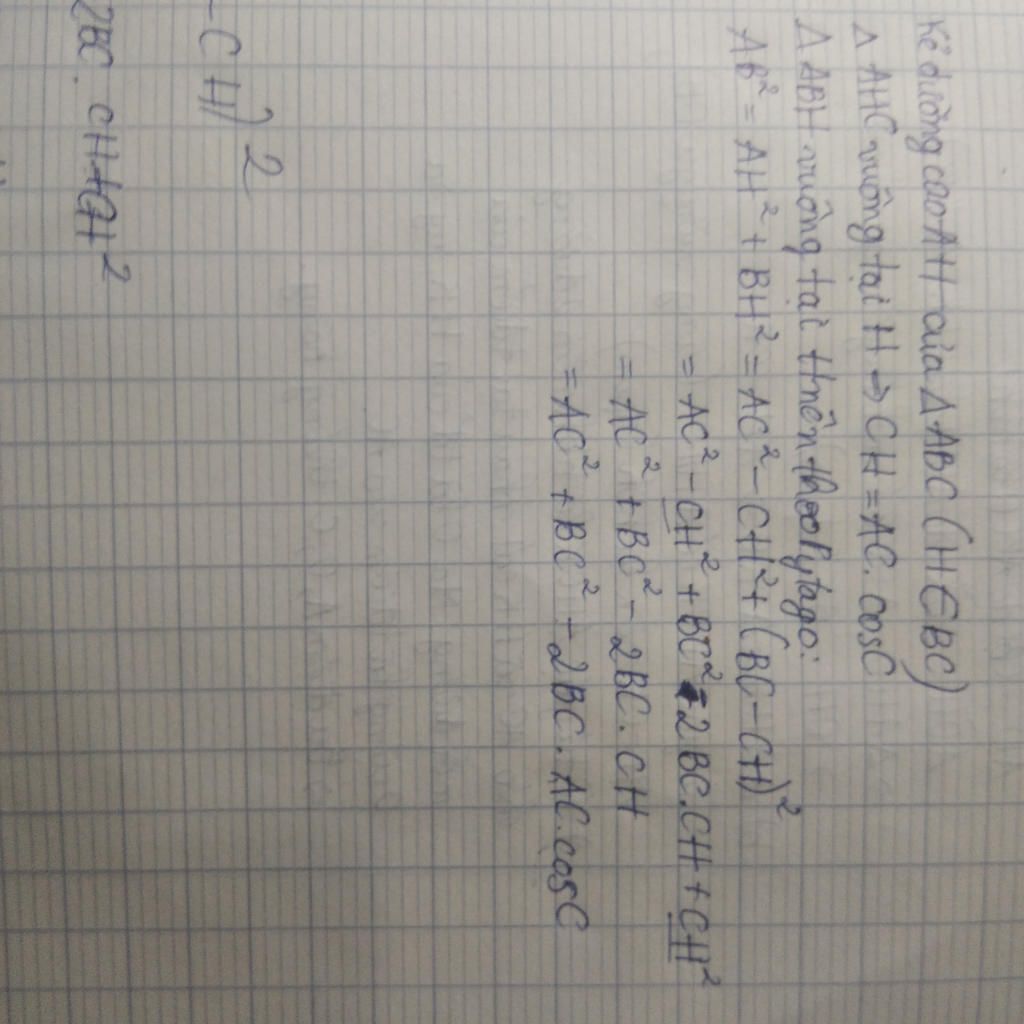 Kẻ đường cao AH của Δ ABC (H ∈ BC)
Δ AHC vuông tại H → CH = AC. cosC
Δ ABH vuông tại H nên theo Pytago:
AB² = AH² + BH² = AC² - CH² + (BC - CH)²
= AC² - CH² + BC² - 2BC.CH + CH²
= AC² + BC² - 2BC.CH
= AC² + BC² - 2BC. AC. cosC
- CH)²
2BC. CH + CH²